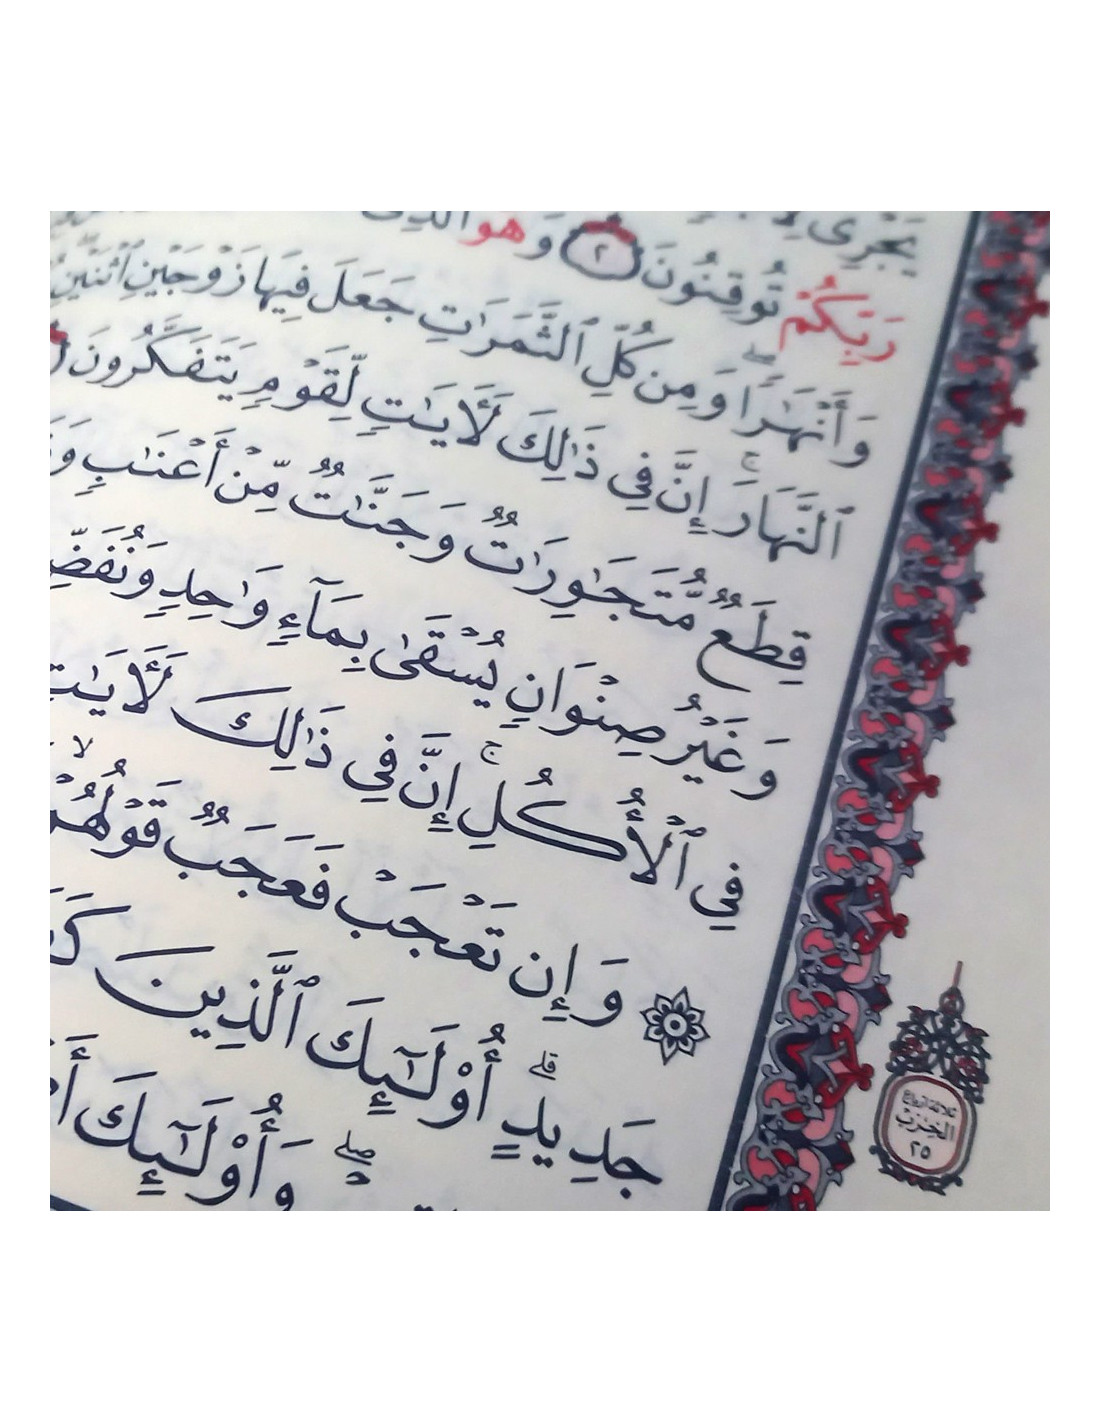 يَجْرِى
رَبِّكُمْ تُوقِنُونَ ٢ وَهُوَ ٱلَّذِى
وَأَنْهَٰرًا ۖ وَمِن كُلِّ ٱلثَّمَرَٰتِ جَعَلَ فِيهَا زَوْجَيْنِ ٱثْنَيْنِ
ٱلنَّهَارَ ۚ إِنَّ فِى ذَٰلِكَ لَءَايَٰتٍ لِّقَوْمٍ يَتَفَكَّرُونَ
قِطَعٌ مُّتَجَٰوِرَٰتٌ وَجَنَّٰتٌ مِّنْ أَعْنَٰبٍ
وَغَيْرُ صِنْوَانٍ يُسْقَىٰ بِمَآءٍ وَٰحِدٍ وَنُفَضِّ
فِى ٱلْأُكُلِ ۚ إِنَّ فِى ذَٰلِكَ لَءَايَٰتٍ
۞ وَإِن تَعْجَبْ فَعَجَبٌ قَوْلُهُمْ
جَدِيدٍ ۗ أُو۟لَٰٓئِكَ ٱلَّذِينَ
ۖ وَأُو۟لَٰٓئِكَ
ثلاثة أرباع
الحزب
٢٥